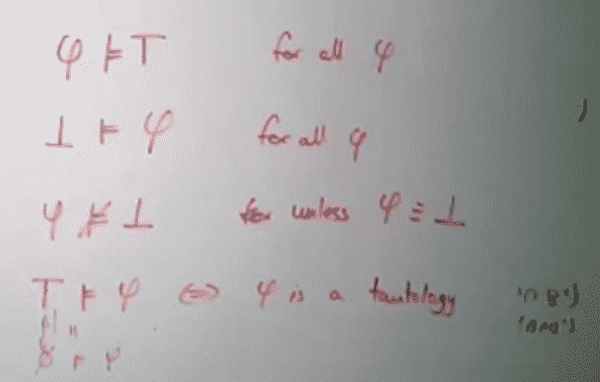 φ ⊨ ⊤ for all φ
⊥ ⊨ φ for all φ
φ ⊭ ⊥ unless φ ≡ ⊥
⊤ ⊨ φ ⇔ φ is a tautology
⊨ φ